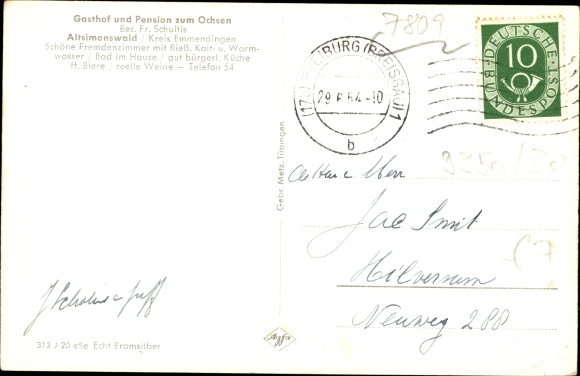 Gasthof und Pension zum Ochsen
Bes. Fr. Schultis
Altsimonswald / Kreis Emmendingen
Schöne Fremdenzimmer mit fließ. Kalt- u. Warm-
wasser / Bad im Hause / gut bürgerl. Küche
ff. Biere / reelle Weine - Telefon 54
7809
FREIBURG (BREISGAU) 1
29.6.54.-10
b
DEUTSCHE
BUNDESPOST
10
9350/30
Gebr. Metz, Tübingen
Jac Smit
Hilversum
Neuweg 288
Agfa
313 J 20 eSe Echt Bromsilber